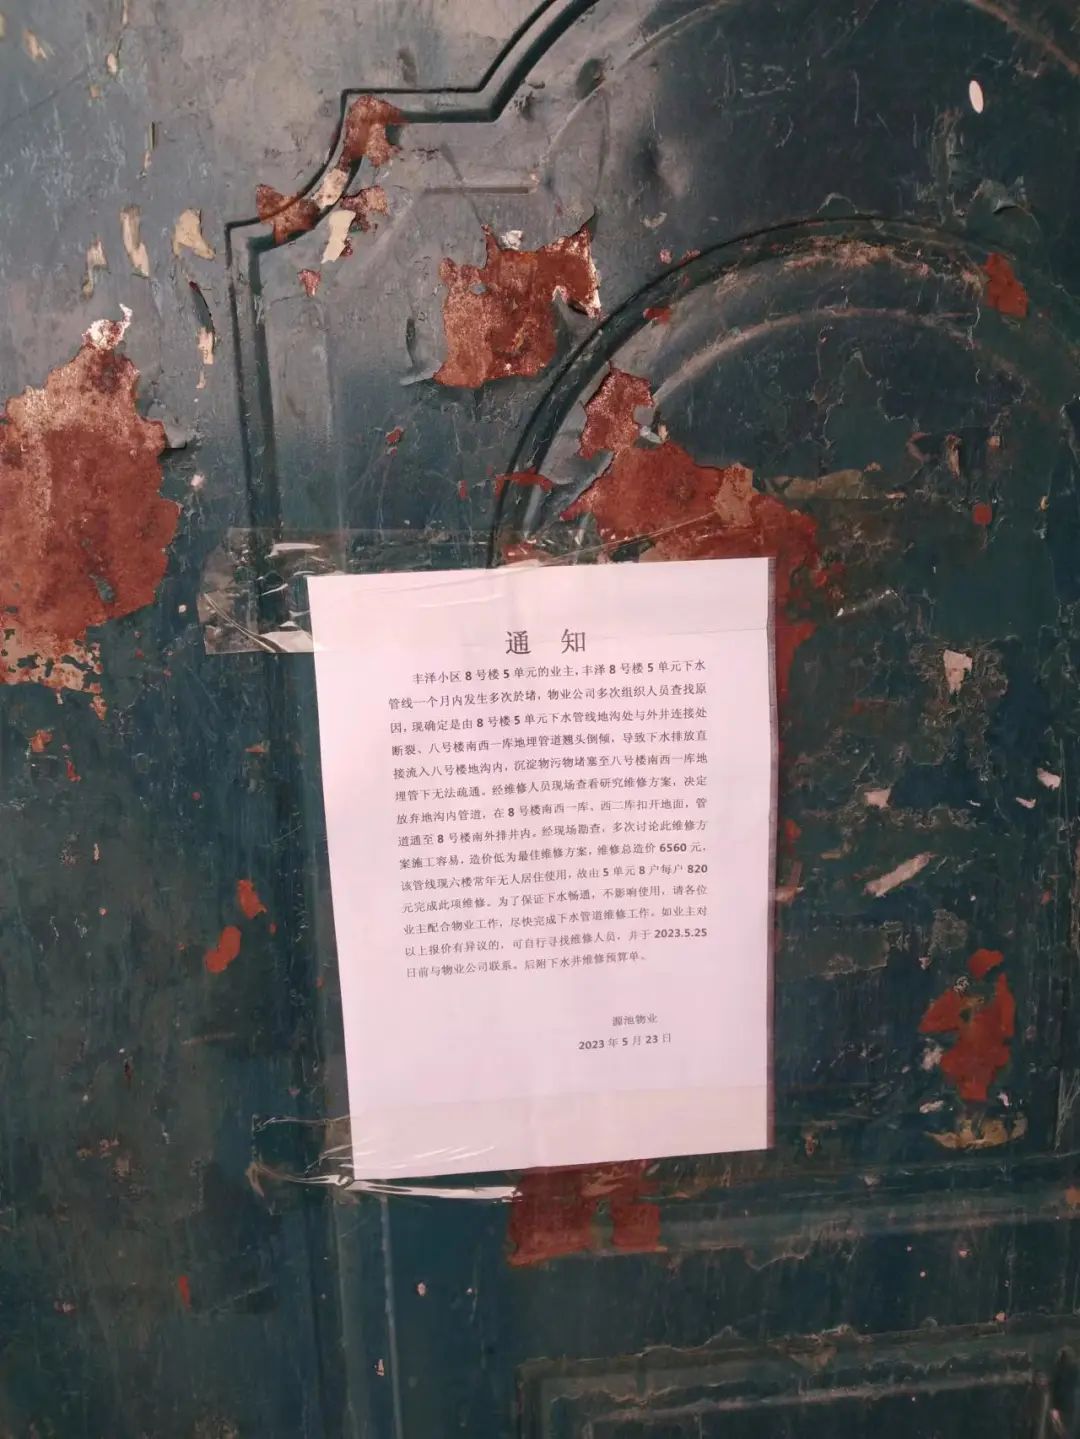 通 知
丰泽小区 8 号楼 5 单元的业主，丰泽 8 号楼 5 单元下水
管线一个月内发生多次於堵，物业公司多次组织人员查找原
因，现确定是由 8 号楼 5 单元下水管线地沟处与外井连接处
断裂、八号楼南西一库地埋管道翘头倒倾，导致下水排放直
接流入八号楼地沟内，沉淀物污物堵塞至八号楼南西一库地
埋管下无法疏通。经维修人员现场查看研究维修方案，决定
放弃地沟内管道，在 8 号楼南西一库、西二库扣开地面，管
道通至 8 号楼南外排井内。经现场勘查，多次讨论此维修方
案施工容易，造价低为最佳维修方案，维修总造价 6560 元，
该管线现六楼常年无人居住使用，故由 5 单元 8 户每户 820
元完成此项维修。为了保证下水畅通，不影响使用，请各位
业主配合物业工作，尽快完成下水管道维修工作。如业主对
以上报价有异议的，可自行寻找维修人员，并于 2023.5.25
日前与物业公司联系。后附下水井维修预算单。
源池物业
2023 年 5 月 23 日